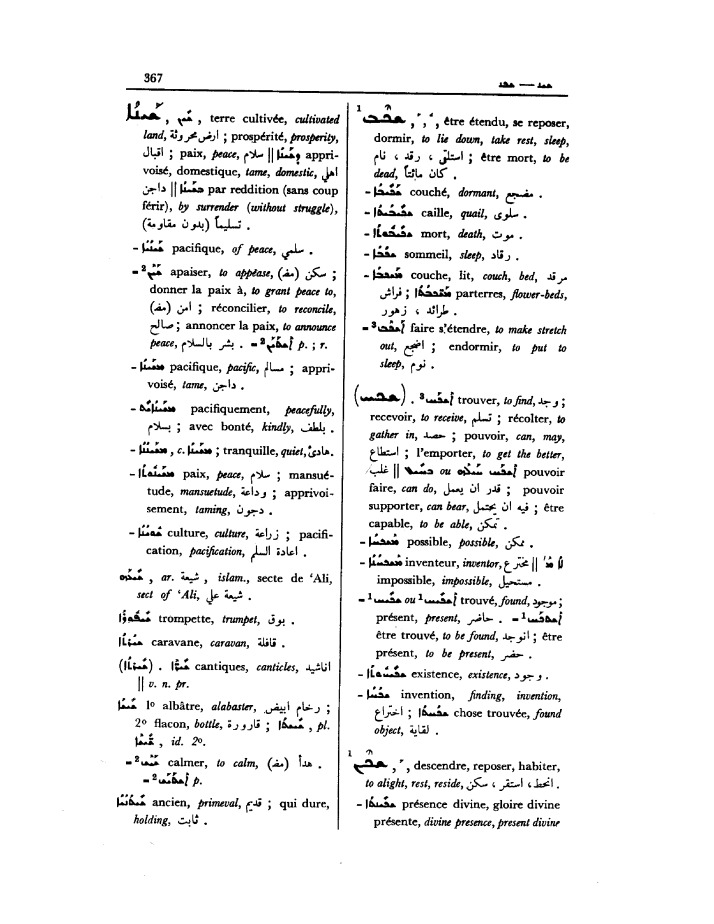 367
ܫܝܢ — ܫܟܢ
ܫܝܢܐ , terre cultivée, cultivated
land, ارض محروثة ; prospérité, prosperity,
اقبال ; paix, peace, سلام || ܕܫܝܢܐ appri-
voisé, domestique, tame, domestic, اهلي
داجن || ܒܫܝܢܐ par reddition (sans coup
férir), by surrender (without struggle),
تسليماً (بدون مقاومة) .
- ܫܝܢܝܐ pacifique, of peace, سلمي .
- ܫܝܢ² apaiser, to appease, (مف) سكن ;
donner la paix à, to grant peace to,
(مف) امن ; réconcilier, to reconcile,
صالح ; annoncer la paix, to announce
peace, بشر بالسلام . - ²ܐܬܬܫܝܢ p. ; r.
- ܡܫܝܢܐ pacifique, pacific, مسالم ; appri-
voisé, tame, داجن .
- ܡܫܝܢܐܝܬ pacifiquement, peacefully,
بسلام ; avec bonté, kindly, بلطف .
- c. ; tranquille, quiet, هادئ .
- ܡܫܝܢܘܬܐ paix, peace, سلام ; mansué-
tude, mansuetude, وداعة ; apprivoi-
sement, taming, دجون .
- ܫܘܝܢܐ culture, culture, زراعة ; pacifi-
cation, pacification, اعادة السلم .
ar. شيعة , islam., secte de ‘Ali,
sect of ‘Ali, شيعة علي .
ܫܝܦܘܪܐ trompette, trumpet, بوق .
ܫܝܪܬܐ caravane, caravan, قافلة .
cantiques, canticles, اناشيد
|| v. n. pr.
ܫܝܫܐ 1º albâtre, alabaster, رخام ابيض ;
2º flacon, bottle, قارورة ; ܫܝܫܬܐ , pl.
ܫܝܫܐ , id. 2º.
- calmer, to calm, (مف) هدأ .
- p.
ancien, primeval, قديم ; qui dure,
holding, ثابت .
1 ܫܟܒ , être étendu, se reposer,
dormir, to lie down, take rest, sleep,
استلقى ، رقد ، نام ; être mort, to be
dead, كان مائتاً .
- ܫܟܝܒܐ couché, dormant, مضجع .
- caille, quail, سلوى .
- mort, death, موت .
- ܫܟܒܐ sommeil, sleep, رقاد .
- ܡܫܟܒܐ couche, lit, couch, bed, مرقد
فراش ; parterres, flower-beds,
طرائد ، زهور .
- ³ܐܫܟܒ faire s’étendre, to make stretch
out, اضجع ; endormir, to put to
sleep, نوم .
(ܫܟܚ) . ³ܐܫܟܚ trouver, to find, وجد ;
recevoir, to receive, تسلم ; récolter, to
gather in, حصد ; pouvoir, can, may,
استطاع ; l’emporter, to get the better,
غلب || ou pouvoir
faire, can do, قدر ان يعمل ; pouvoir
supporter, can bear, فيه ان يحتمل ; être
capable, to be able, تمكن .
- possible, possible, ممكن .
- ܡܫܟܚܢܐ inventeur, inventor, مخترع ||
impossible, impossible, مستحيل .
- ¹ܫܟܝܚ ou ¹ trouvé, found, موجود ;
présent, present, حاضر . - ¹ܐܫܬܟܚ
être trouvé, to be found, انوجد ; être
présent, to be present, حضر .
- ܫܟܝܚܘܬܐ existence, existence, وجود .
- ܫܟܚܐ invention, finding, invention,
اختراع ; ܫܟܚܬܐ chose trouvée, found
object, لقاية .
1 ܫܟܢ , descendre, reposer, habiter,
to alight, rest, reside, انحط ، استقر ، سكن .
- ܫܟܝܢܬܐ présence divine, gloire divine
présente, divine presence, present divine